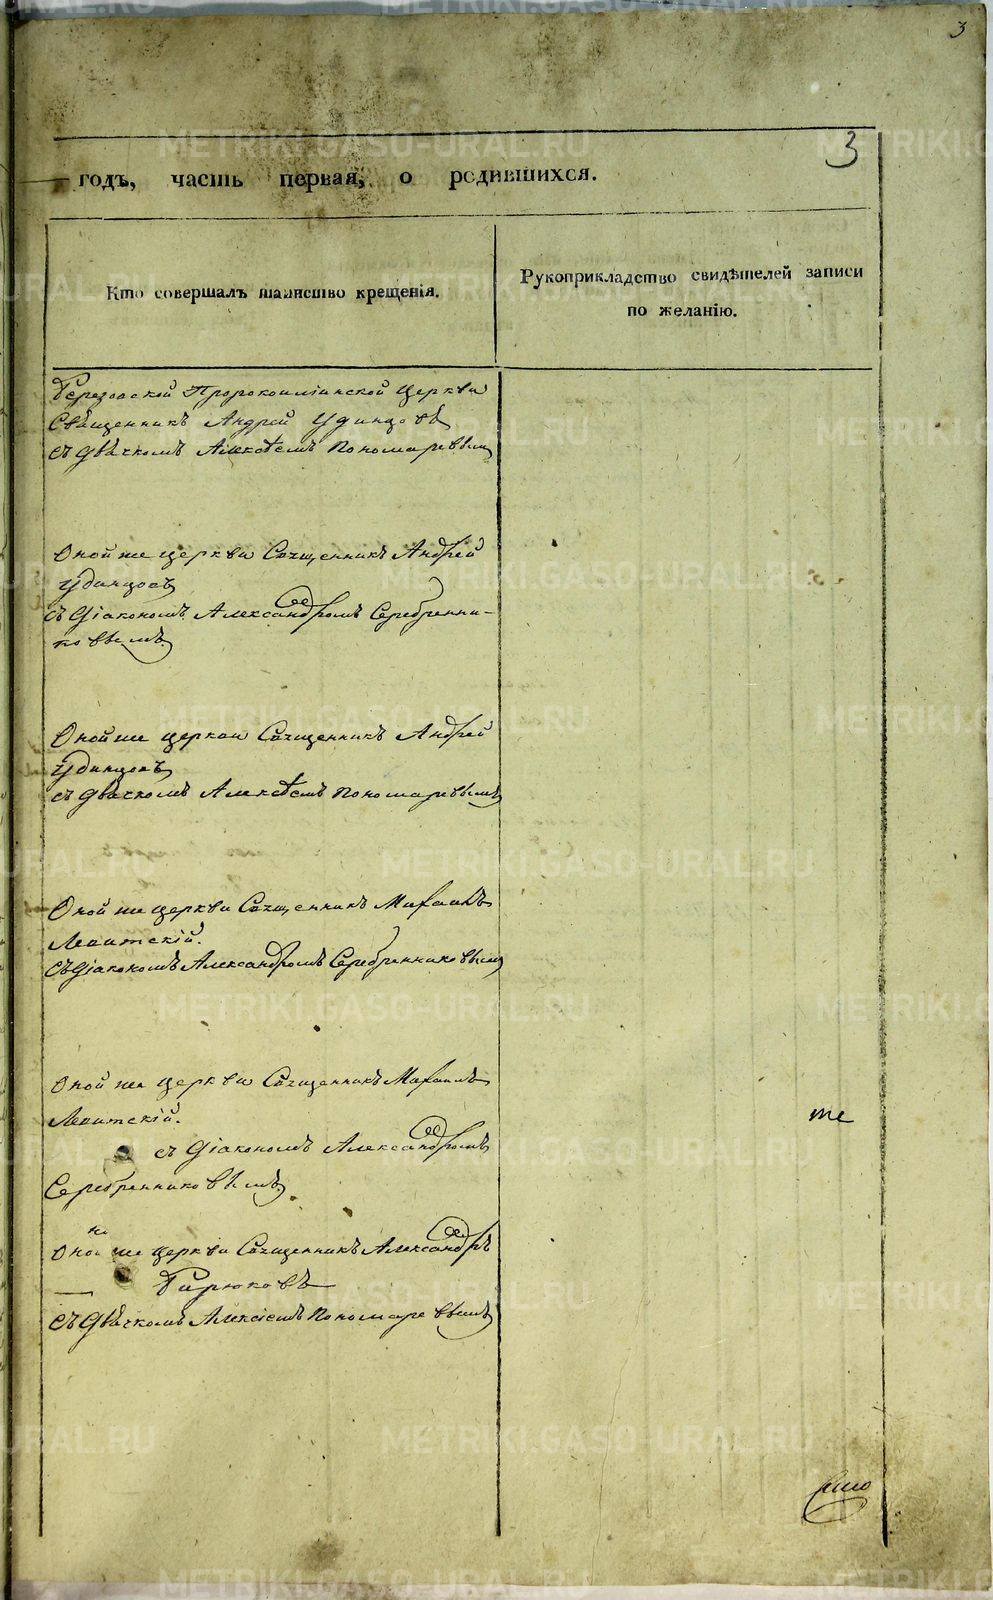 3
3
годъ, часть первая, о родившихся.
Кто совершалъ таинство крещенія.
Рукоприкладство свидѣтелей записи
по желанію.
Березовской Пророкоилiинской Церкви
Священникъ Андрей Удинцовъ
съ дьячкомъ Алексѣемъ Пономаревым
Оной же церкви Священникъ Андрей
Удинцовъ
съ Діакономъ Александромъ Серебренни-
ковымъ
Оной же церкви Священникъ Андрей
Удинцовъ
съ дьячкомъ Алексѣемъ Пономаревымъ
Оной же церкви Священникъ Михаилъ
Левитскій.
съ Діакономъ Александромъ Серебренниковым
Оной же церкви Священникъ Михаилъ
Левитскій.
съ Діакономъ Александромъ
Серебренниковымъ
Оной же церкви Священникъ Александръ
Бирюковъ
съ Дьячкомъ Алексіемъ Пономаревымъ
те
METRIKI.GASO-URAL.RU